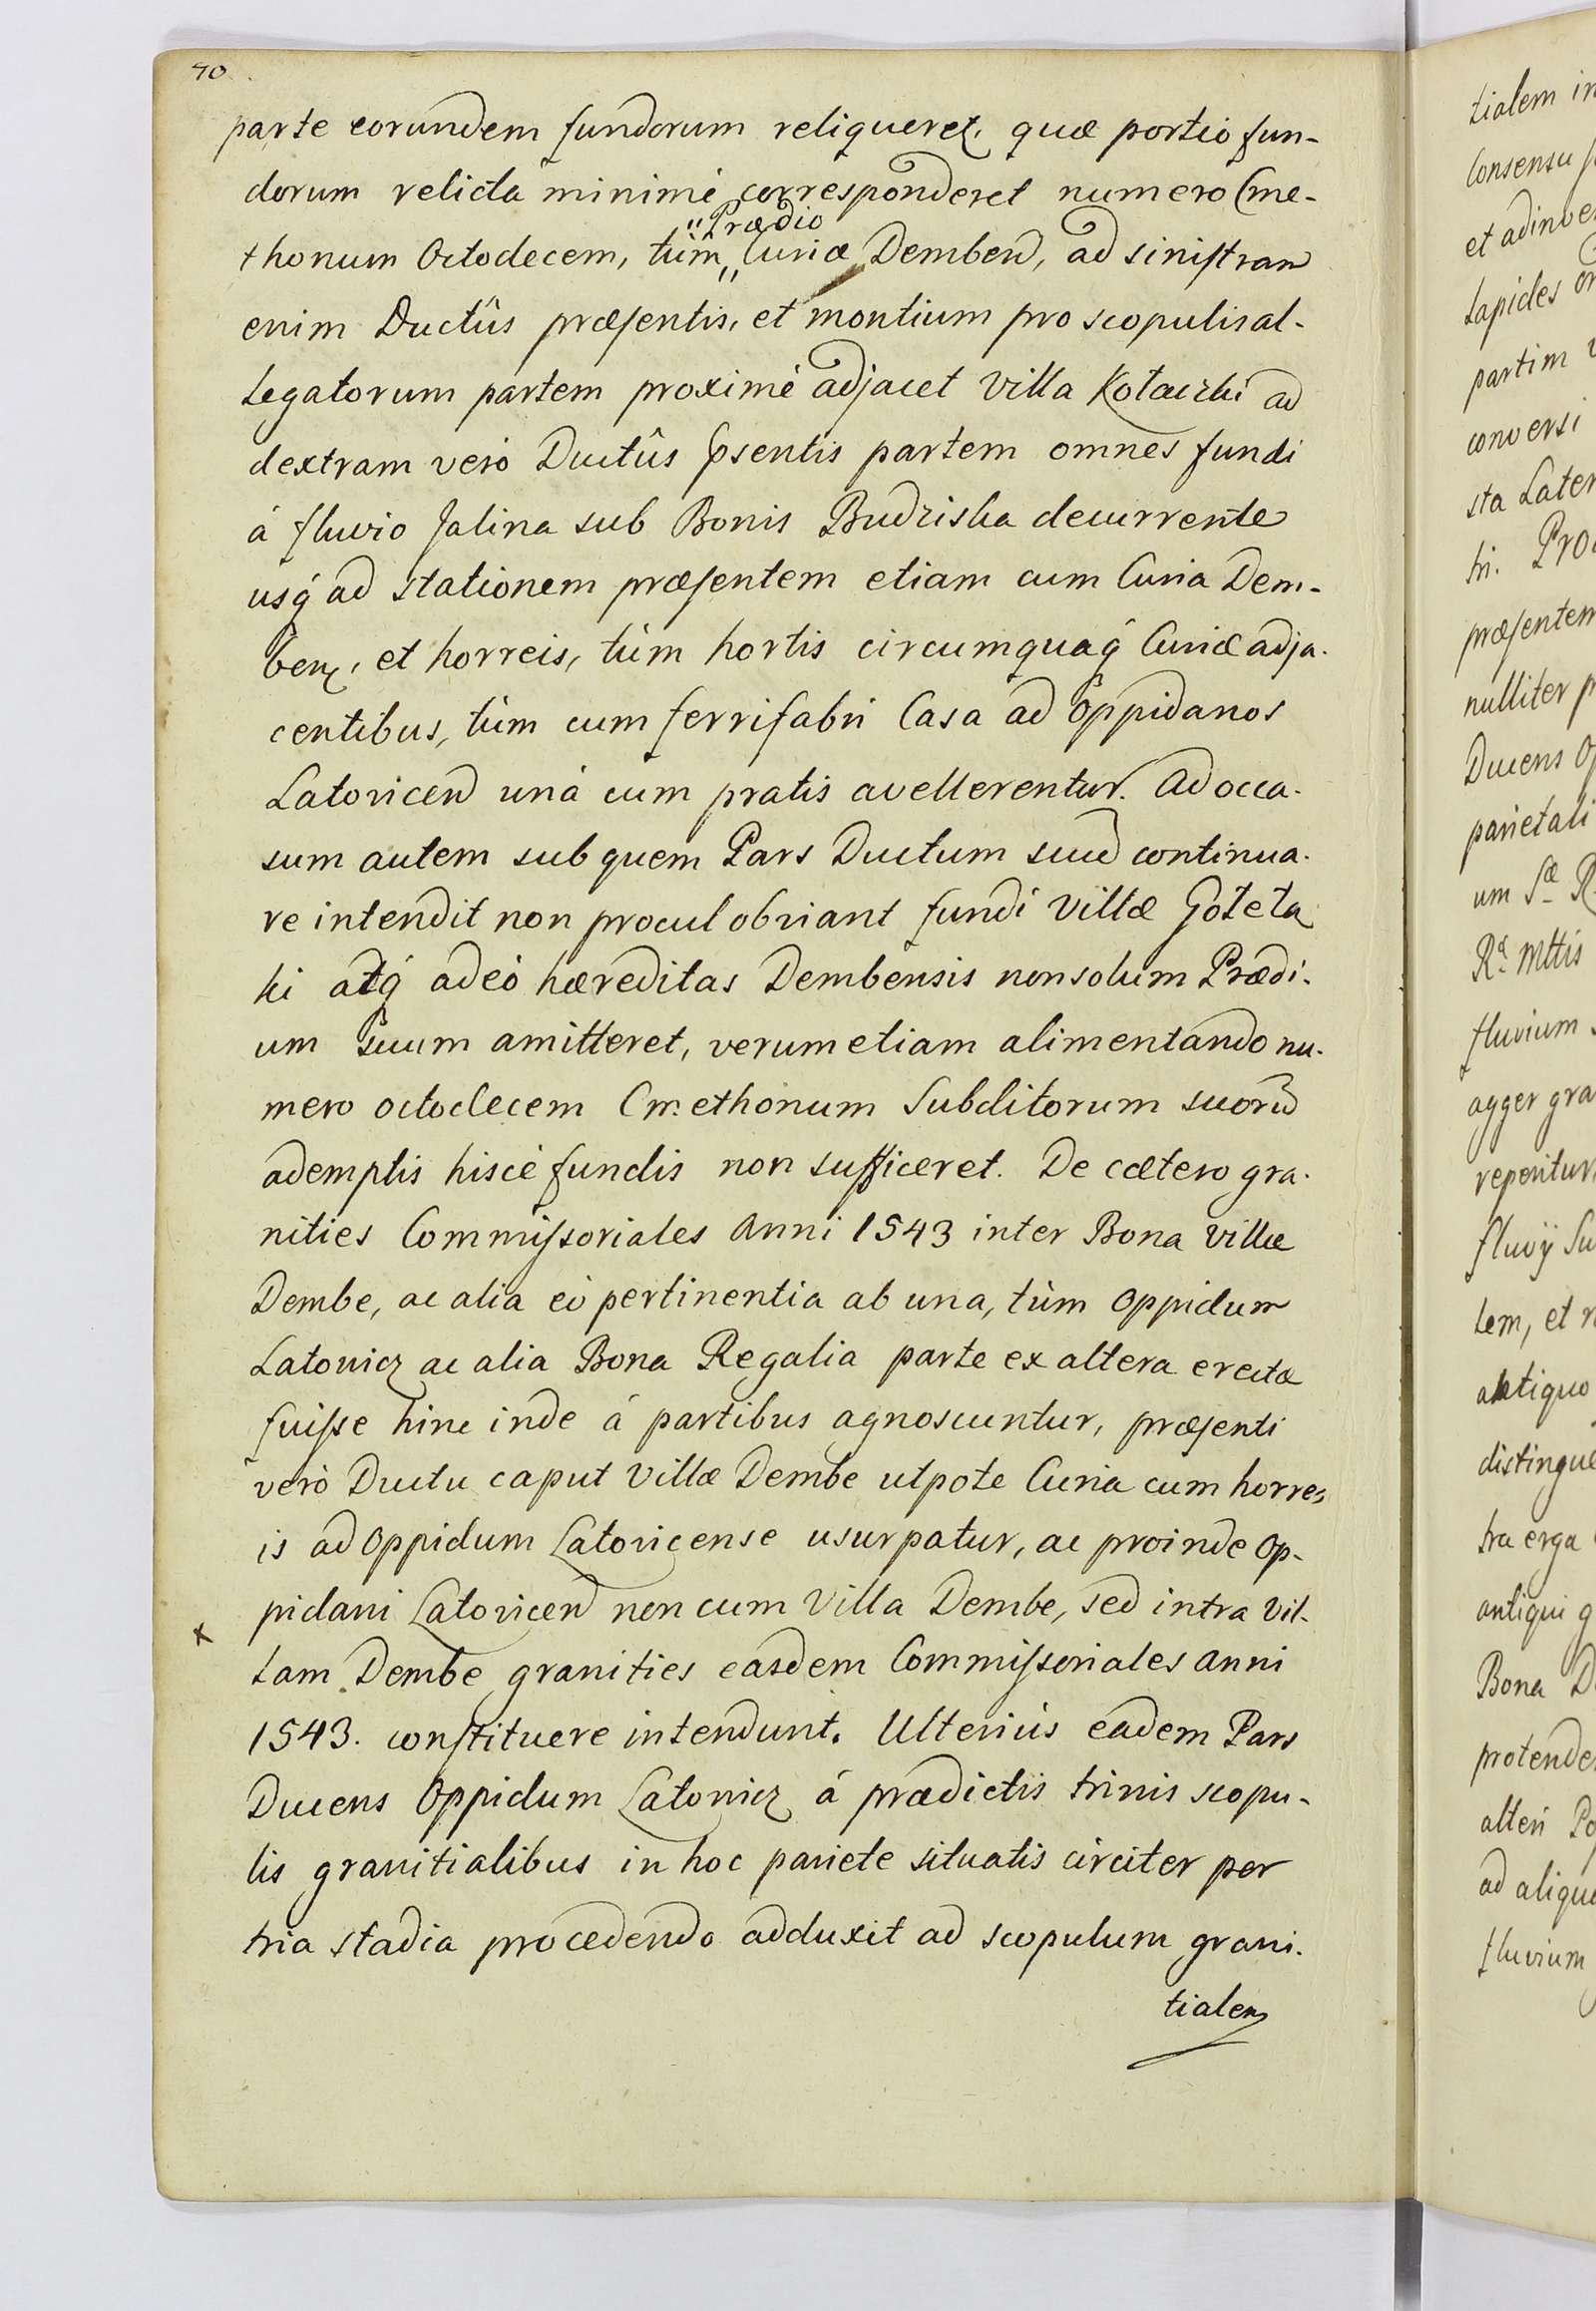 40
parte eorundem fundorum reliqueret, quæ portio fun-
dorum relicta minimè corresponderet numero Cme-
"Prædio
thonum Octodecem, tùm,, Curiæ Demben, ad sinistram
enim Ductûs præsentis, et montium pro scopulis al-
legatorum partem proximè adjacet Villa Kotaczki ad
dextram verò Ductûs psentis partem omnes fundi
á fluvio Jalina sub Bonis Budziska decurrente
usq́ ad stationem præsentem etiam cum Curia Dem-
ben, et horreis, tùm hortis circumquaq́ Curiæ adja-
centibus, tùm cum ferrifabri Casa ad Oppidanos
Latovicen unà cum pratis avellerentur. Ad occa-
sum autem sub quem Pars Ductum suum continua-
re intendit non procul obviant fundi Villæ Gołełą
ki atq́ adeò hæreditas Dembensis non solum Prædi-
um suum amitteret, verum etiam alimentando nu-
mero octodecem Cmethonum Subditorum suorũ
ademptis hisce fundis non sufficeret. De cætero gra-
nities Commissoriales Anni 1543 inter Bona Villæ
Dembe, ac alia eò pertinentia ab una, tùm Oppidum
Latovicz ac alia Bona Regalia parte ex altera erectæ
fuisse hinc inde á partibus agnoscuntur, præsenti
verò Ductu caput Villæ Dembe utpote Curia cum horre-
is ad Oppidum Latovicense usurpatur, ac proinde Op-
pidani Latovicen non cum Villa Dembe, sed intra Vil-
x
lam Dembe granities easdem Commissoriales anni
1543. constituere intendunt. Ulterius eadem Pars
Ducens Oppidum Latovicz á prædictis trinis scopu-
lis granitialibus in hoc pariete situatis circiter per
tria stadia procedendo adduxit ad scopulum grani-
tialem
tialem in
Consensu
et adinve
Lapides
partim
conversi
sta Later
tri. Pro
præsentem
nulliter
Ducens Op
parietali
um Sæ R
Rá Mttis
fluvium
agger gra
reperitur
fluvÿ Su
lem, et
antiquo
distingue
tra erga
antiqui g
Bona D
protende
alteri Po
ad aliqu
fluvium